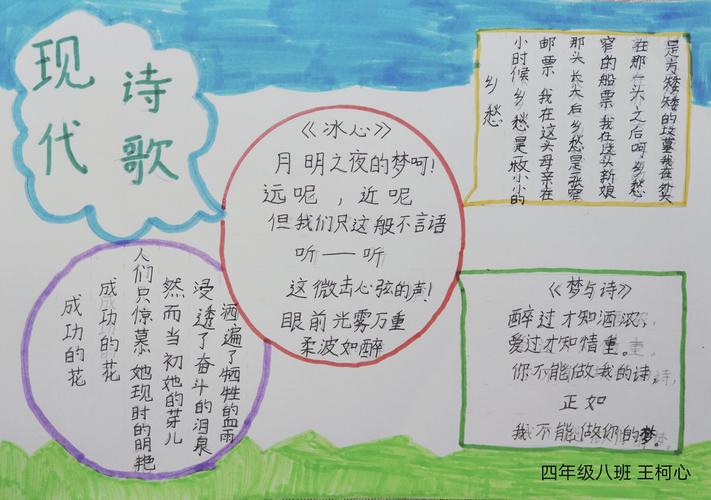 现代
诗歌
《冰心》
月明之夜的梦呵!
远呢，近呢
但我们只这般不言语
听——听
这微击心弦的声!
眼前光雾万重
柔波如醉
乡愁
小时候 乡愁是一枚小小的
邮票 我在这头母亲在
那头 长大后 乡愁是一张窄
窄的船票 我在这头 新娘
在那一头 之后呵 乡愁
是方矮矮的坟墓我在外头
成功的花
成功的花
人们只惊慕她现时的明艳
然而当初她的芽儿
浸透了奋斗的泪泉
洒遍了牺牲的血雨
《梦与诗》
醉过才知酒浓、
爱过才知情重。
你不能做我的诗，
正如
我不能做你的梦。
四年级八班 王柯心